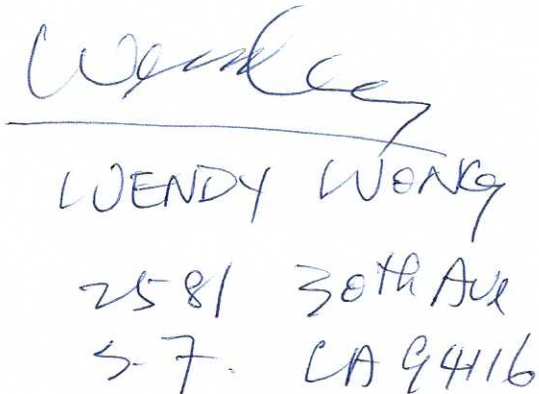 WENDY WONG
2581 30th Ave
S.F. CA 94116